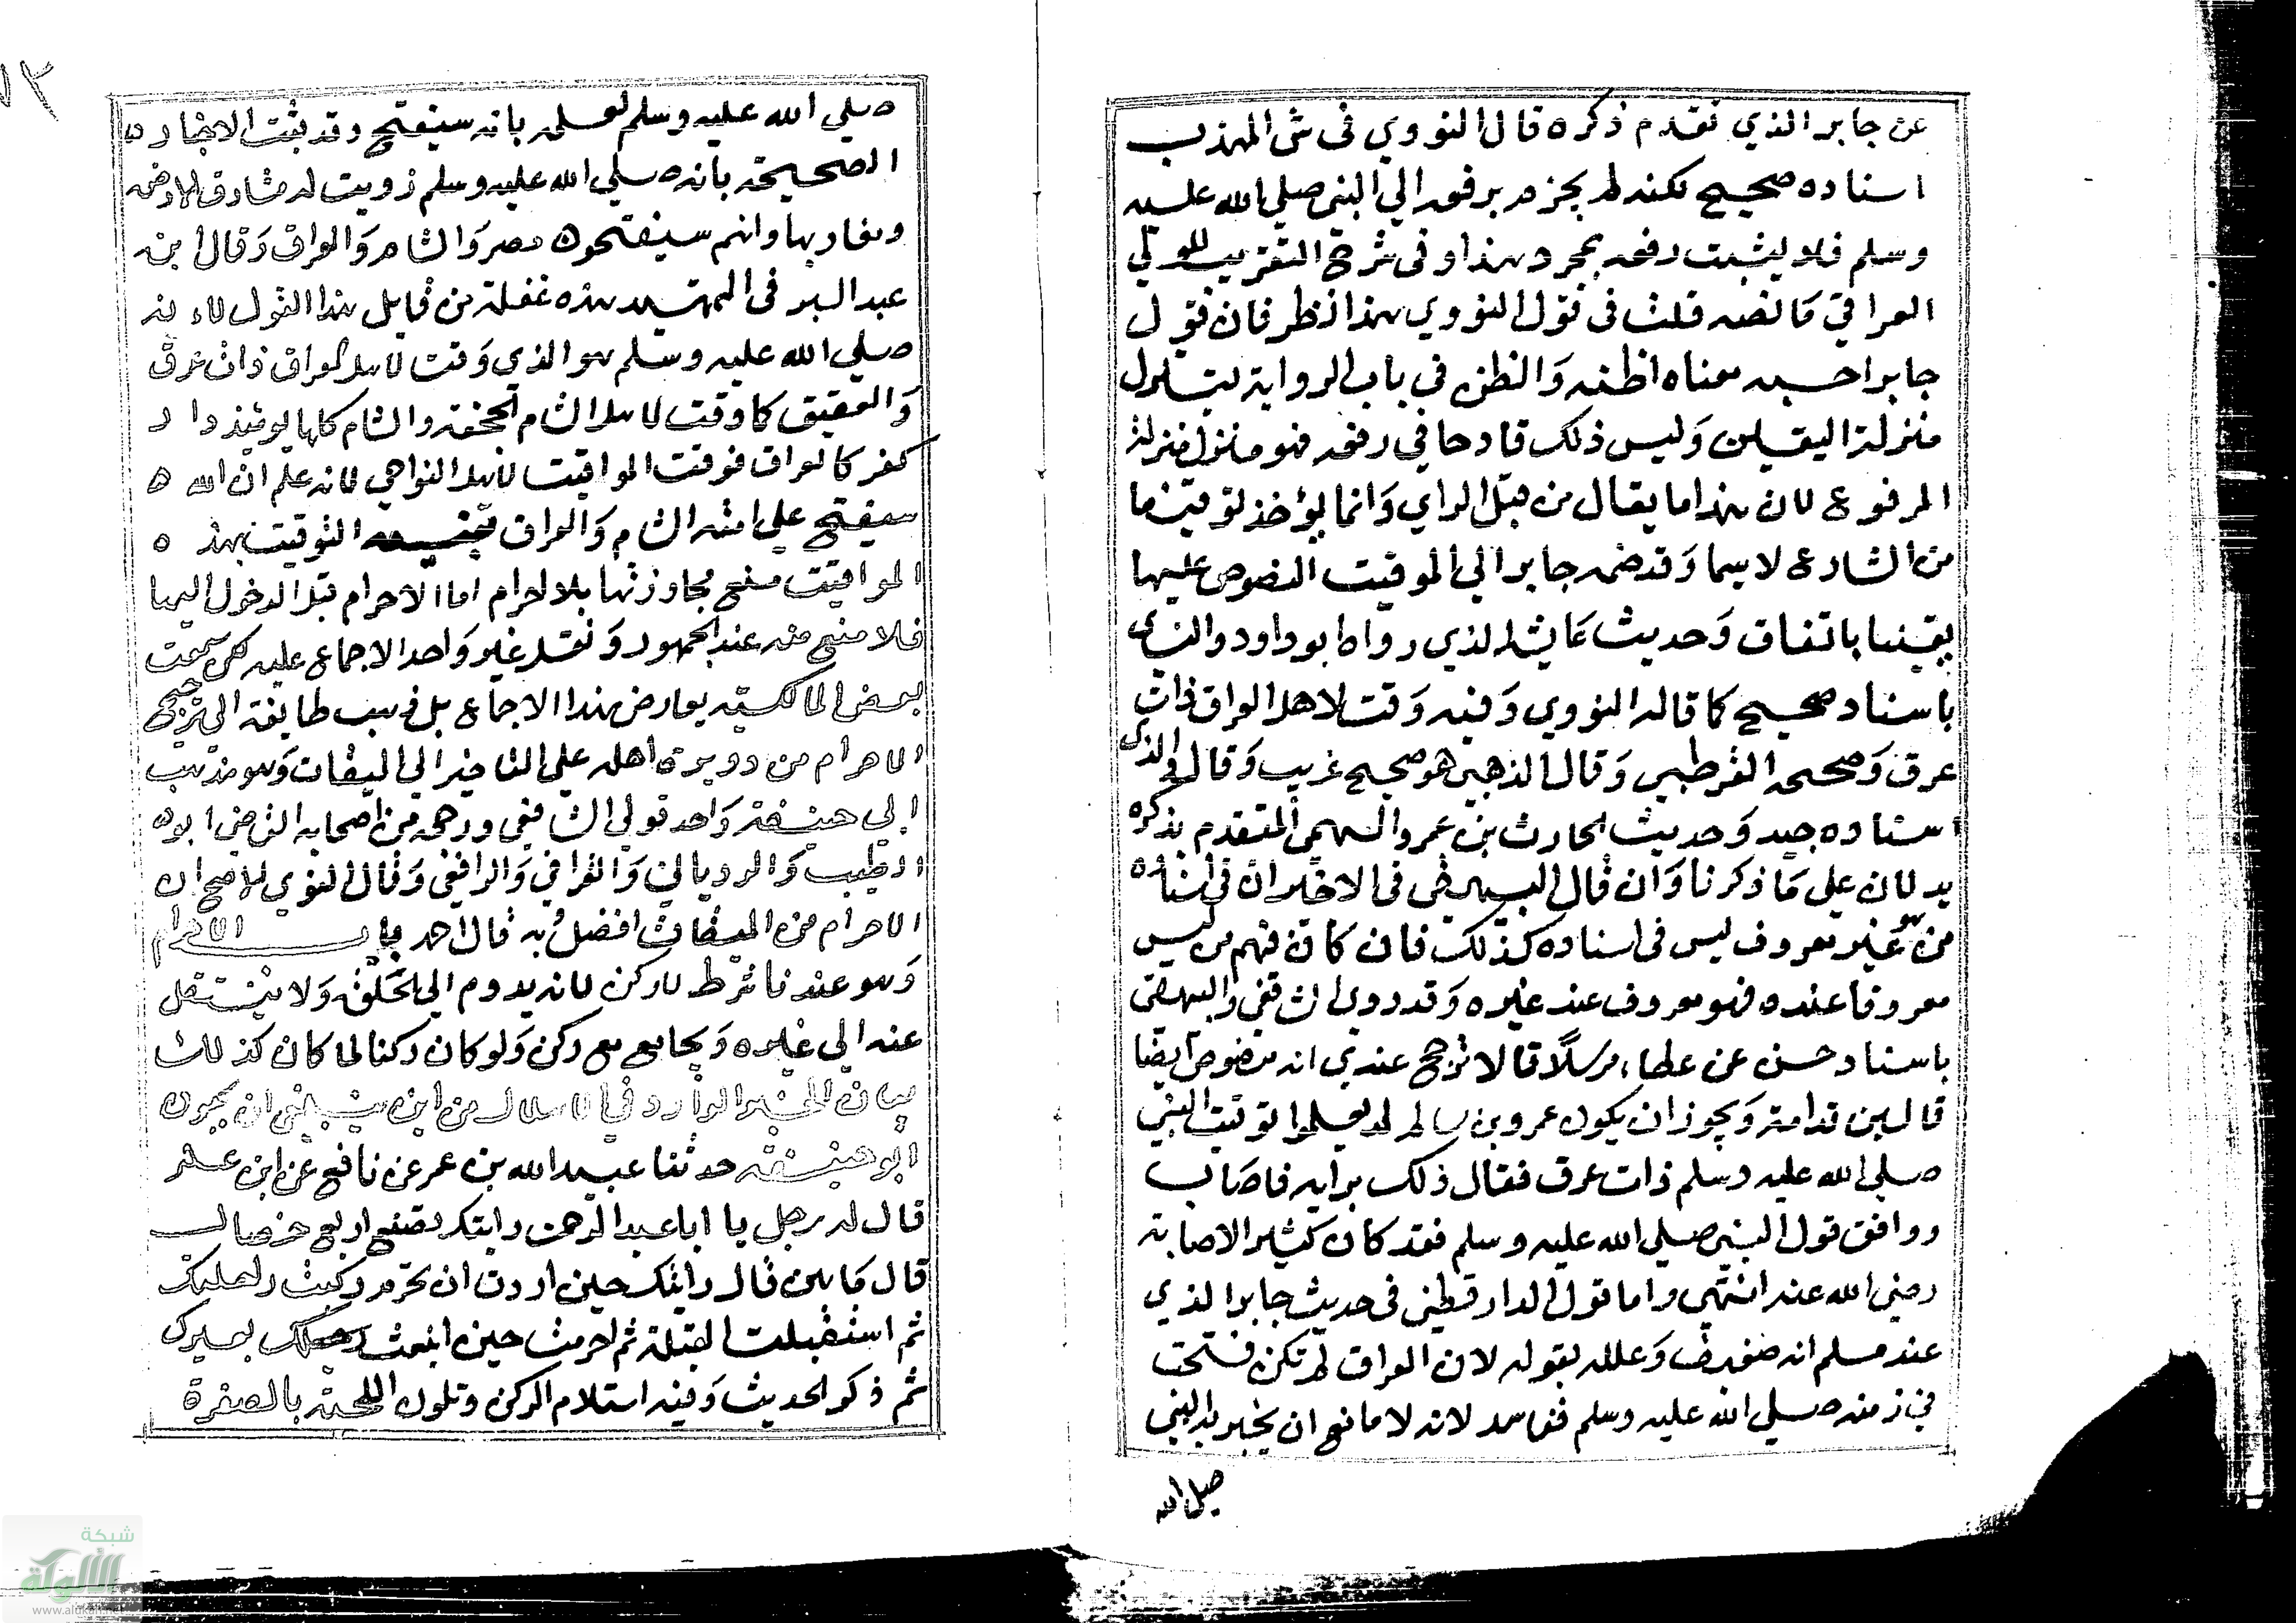 عن جابر الذي تقدم ذكره قال النووي في ش المهذب
اسناده صحيح لكنه لم يجزم برفعه الي النبي صلي الله عليه
وسلم فلا يثبت رفعه بمجرد هذا وفي شرح التقريب للولي
العراقي ما نصه قلت في قول النووي هذا نظر فان قول
جابر احسبه معناه اظنه والظن في باب الرواية يتنزل
منزلة اليقين وليس ذلك قادحا في رفعه فهو منزل منزلة
المرفوع لان هذا ما يقال من قبل الراي وانما يؤخذ توقيفا
من الشارع لا سيما وقد ضمه جابر الي المواقيت المنصوص عليها
يقينا باتفاق وحديث عايشه الذي رواه ابو داود والنساي
باسناد صحيح كما قاله النووي وفيه وقت لاهل العراق ذات
عرق وصححه القرطبي وقال الذهبي هو صحيح غريب وقال والدي
اسناده جيد وحديث الحارث بن عمرو السهمي المتقدم بذكره
يدلان علي ما ذكرنا وان قال البيهقي في الاخير ان في اسناده
من هو غير معروف ليس في اسناده كذلك فان كان فيهم من ليس
معروفا عنده فهو معروف عند غيره وقد روي الشافعي والبيهقي
باسناد حسن عن عطاء مرسلا قالا لا ترجح عندي انه منصوص ايضا
قال بن قدامة ويجوز ان يكون عمر وبن سالم لم يعلموا توقيت النبي
صلي الله عليه وسلم ذات عرق فقال ذلك برايه فاصاب
ووافق قول النبي صلي الله عليه وسلم فقد كان كثير الاصابة
رضي الله عنه انتهي واما قول الدارقطني في حديث جابر الذي
عند مسلم انه ضعيف وعلله بقوله لان العراق لم تكن فتحت
في زمنه صلي الله عليه وسلم ففاسد لانه لا مانع ان يخبر به النبي
صلي الله
صلي الله عليه وسلم لعلمه بانه سيفتح وقد ثبت الاخبار
الصحيحة بانه صلي الله عليه وسلم زويت له مشارق الارض
ومغاربها وانهم سيفتحون مصر والشام والعراق وقال ابن
عبد البر في التمهيد هذه غفلة من قايل هذا القول لانه
صلي الله عليه وسلم هو الذي وقت لاهل العراق ذات عرق
والعقيق كما وقت لاهل الشام الجحفة والشام كلها يومئذ دار
كفر كالعراق فوقت المواقيت لاهل النواحي لانه علم ان الله
سيفتح علي امته الشام والعراق التوقيت بهذه
المواقيت منع مجاوزتها بلا احرام اما الاحرام قبل الدخول اليها
فلا منع منه عند الجمهور ونقل غير واحد الاجماع عليه لكن سمعت
بعض المالكية يعارض هذا الاجماع بل ذهب طايفة الي ترجيح
الاحرام من دويرة اهله علي التاخير الي الميقات وهو مذهب
ابي حنيفة واحد قولي الشافعي ورجحه من اصحابه القاضي ابو
الطيب والروياني والغزالي والرافعي وقال النووي الاصح ان
الاحرام من الميقات افضل وبه قال احمد باب الاحرام
وهو عندنا شرط لا ركن لانه يدوم الي الحلق ولا ينتقل
عنه الي غيره ويجامع مع ركن ولو كان ركنا لما كان كذلك
بيان الخبر الوارد في الاهلال من اين ينبغي ان يكون
ابو حنيفة حدثنا عبيد الله بن عمر عن نافع عن ابن عمر
قال له رجل يا ابا عبد الرحمن رايتك تصنع اربع خصال
قال ما هن قال رايتك حين اردت ان تحرم ركبت راحلتك
ثم استقبلت القبلة ثم احرمت حين انبعث بعيرك
ثم ذكر الحديث وفيه استلام الركن وتلون اللحية بالصفرة
شبكة
الألوكة
www.alukah.net